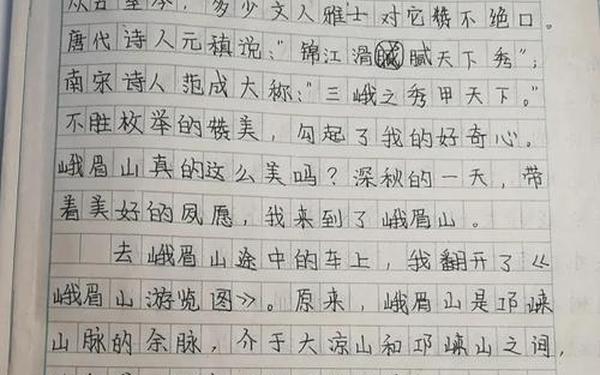 从古至今，多少文人雅士对它赞不绝口。
唐代诗人元稹说："锦江滑腻天下秀"；
南宋诗人范成大称："三峨之秀甲天下。"
不胜枚举的赞美，勾起了我的好奇心。
峨眉山真的这么美吗？深秋的一天，带
着美好的夙愿，我来到了峨眉山。
去峨眉山途中的车上，我翻开了《
峨眉山游览图》。原来，峨眉山是邛崃
山脉的余脉，介于大凉山和邛崃山之间，